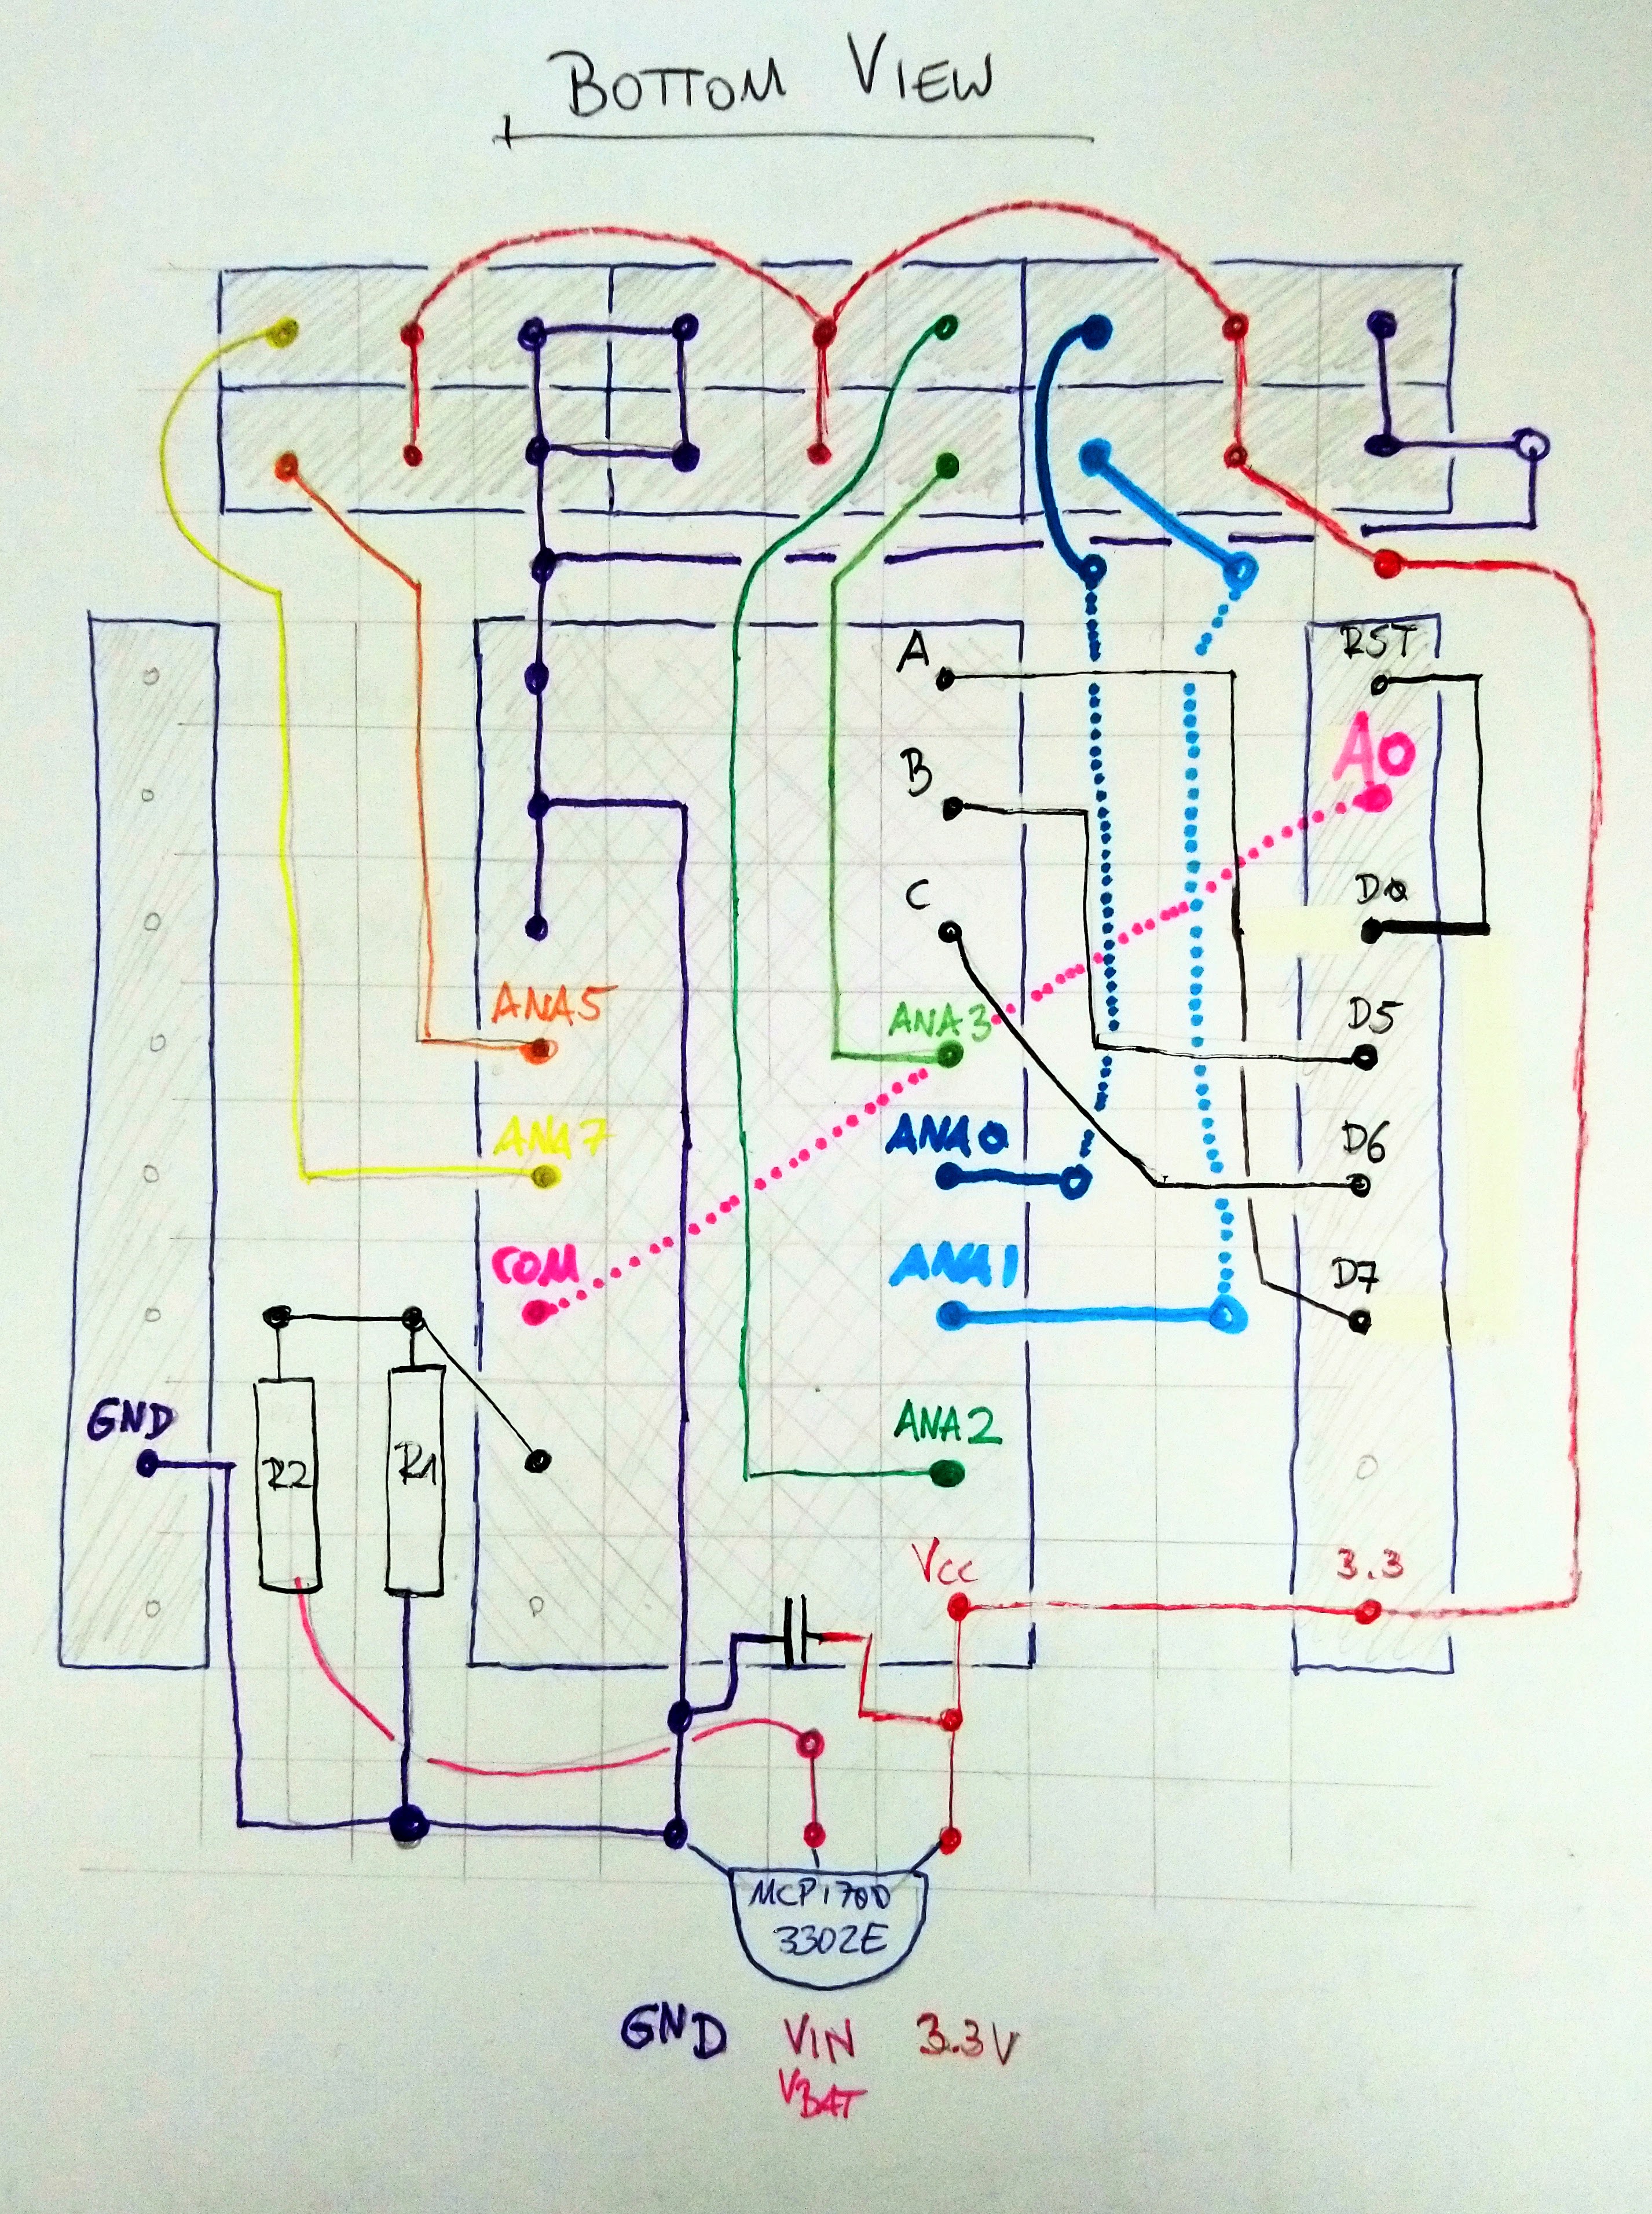 BOTTOM VIEW
A
RST
A0
B
C
D0
ANA5
ANA3
D5
ANA7
ANA0
D6
COM
ANA1
D7
GND
R2
R1
ANA2
Vcc
3.3
MCP1700
3302E
GND VIN 3.3V
VBAT